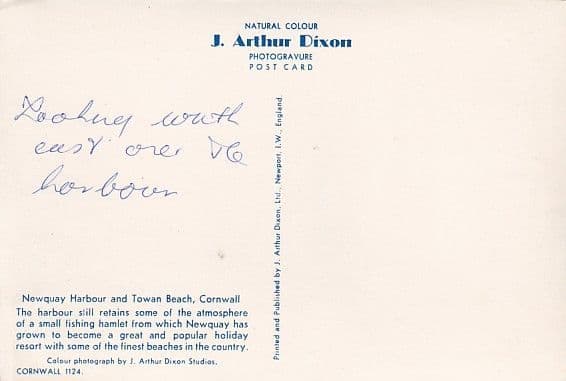 NATURAL COLOUR
J. Arthur Dixon
PHOTOGRAVURE
POST CARD
Looking
east over the
harbour
Newquay Harbour and Towan Beach, Cornwall
The harbour still retains some of the atmosphere
of a small fishing hamlet from which Newquay has
grown to become a great and popular holiday
resort with some of the finest beaches in the country.
Colour photograph by J. Arthur Dixon Studios.
CORNWALL 1124.
Printed and Published by J. Arthur Dixon, Ltd., Newport, I.W., England.